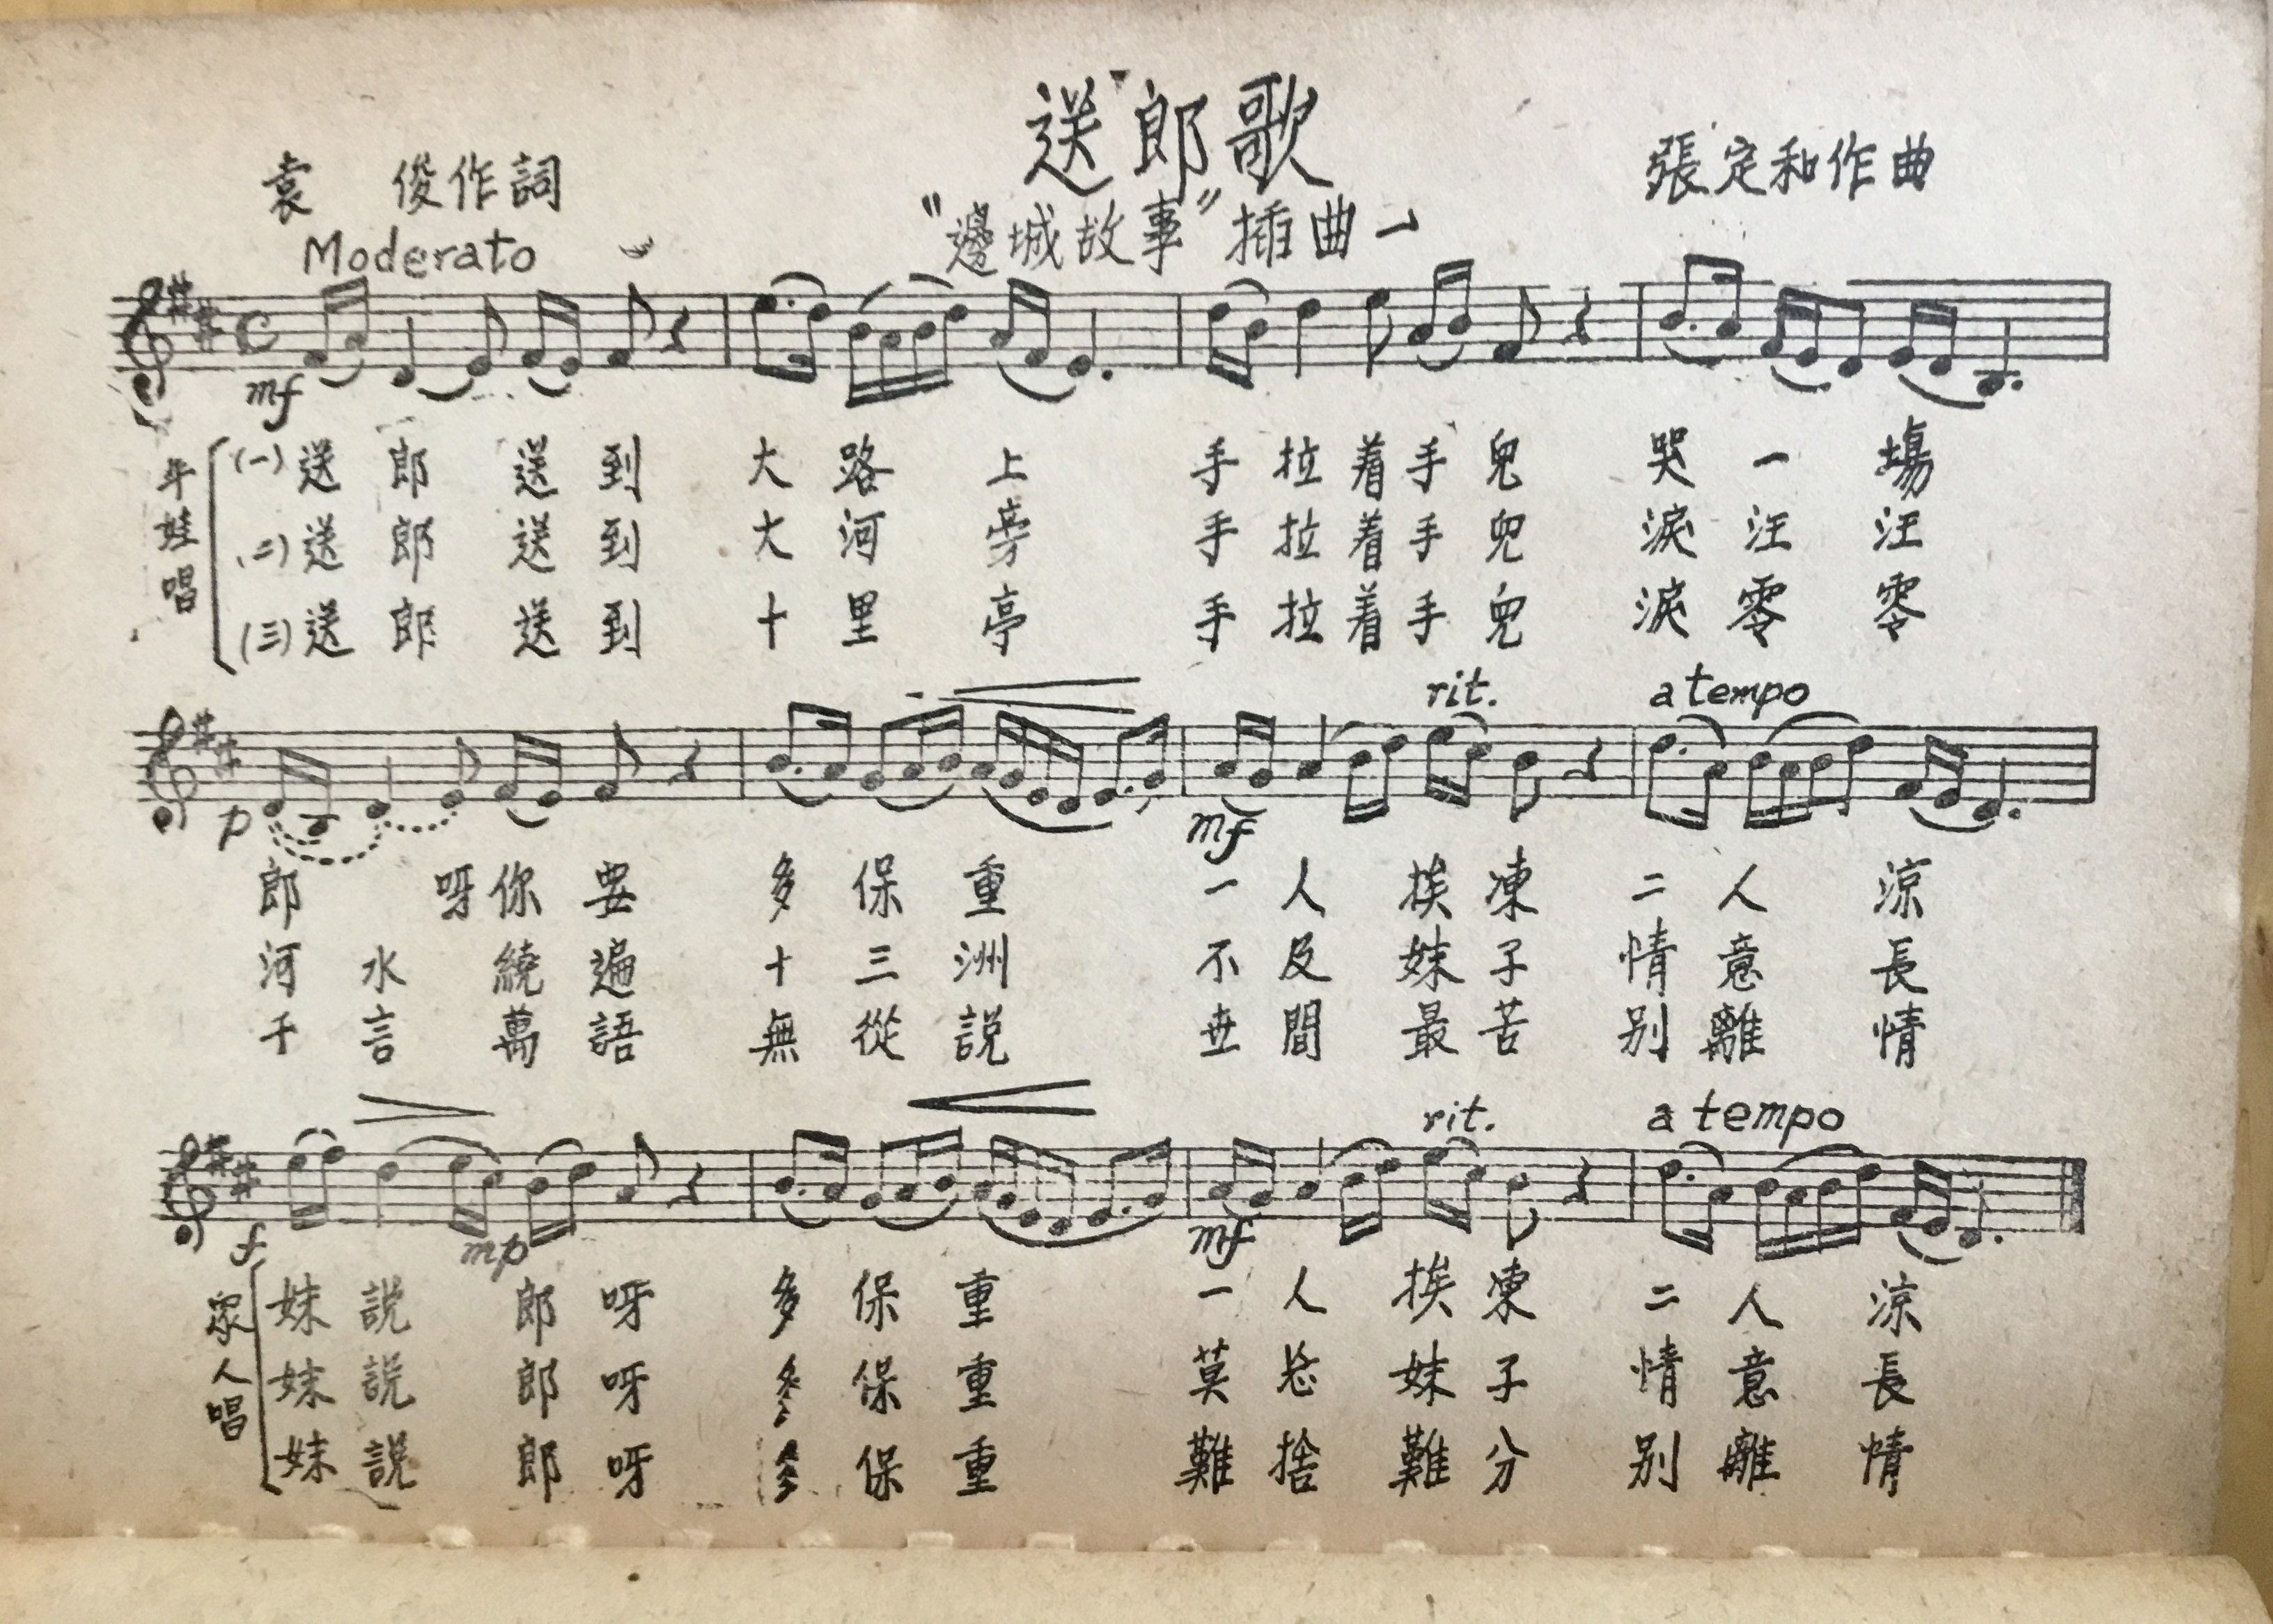 送郎歌
袁 俊作詞
張定和作曲
"邊城故事"插曲一
Moderato
mf
年娃唱
(一)送郎 送到 大路 上 手拉着手兒 哭一 塲
(二)送郎 送到 大河 旁 手拉着手兒 淚汪 汪
(三)送郎 送到 十里 亭 手拉着手兒 淚零 零
rit. a tempo
p mf
郎 呀你要 多保重 一人 挨凍 二人 涼
河水 繞遍 十三洲 不及 妹子 情意 長
千言 萬語 無從説 世間 最苦 别離 情
rit. a tempo
f mp mf
眾人唱
妹説 郎呀 多保重 一人 挨凍 二人 涼
妹説 郎呀 多保重 莫忘 妹子 情意 長
妹説 郎呀 多保重 難捨 難分 别離 情